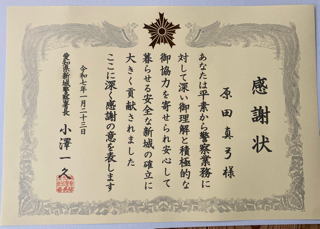 感謝状
原田真弓様
あなたは平素から警察業務に
対して深い御理解と積極的な
御協力を寄せられ安心して
暮らせる安全な新城の確立に
大きく貢献されました
ここに深く感謝の意を表します
令和七年一月二十三日
愛知県新城警察署長
小澤一久